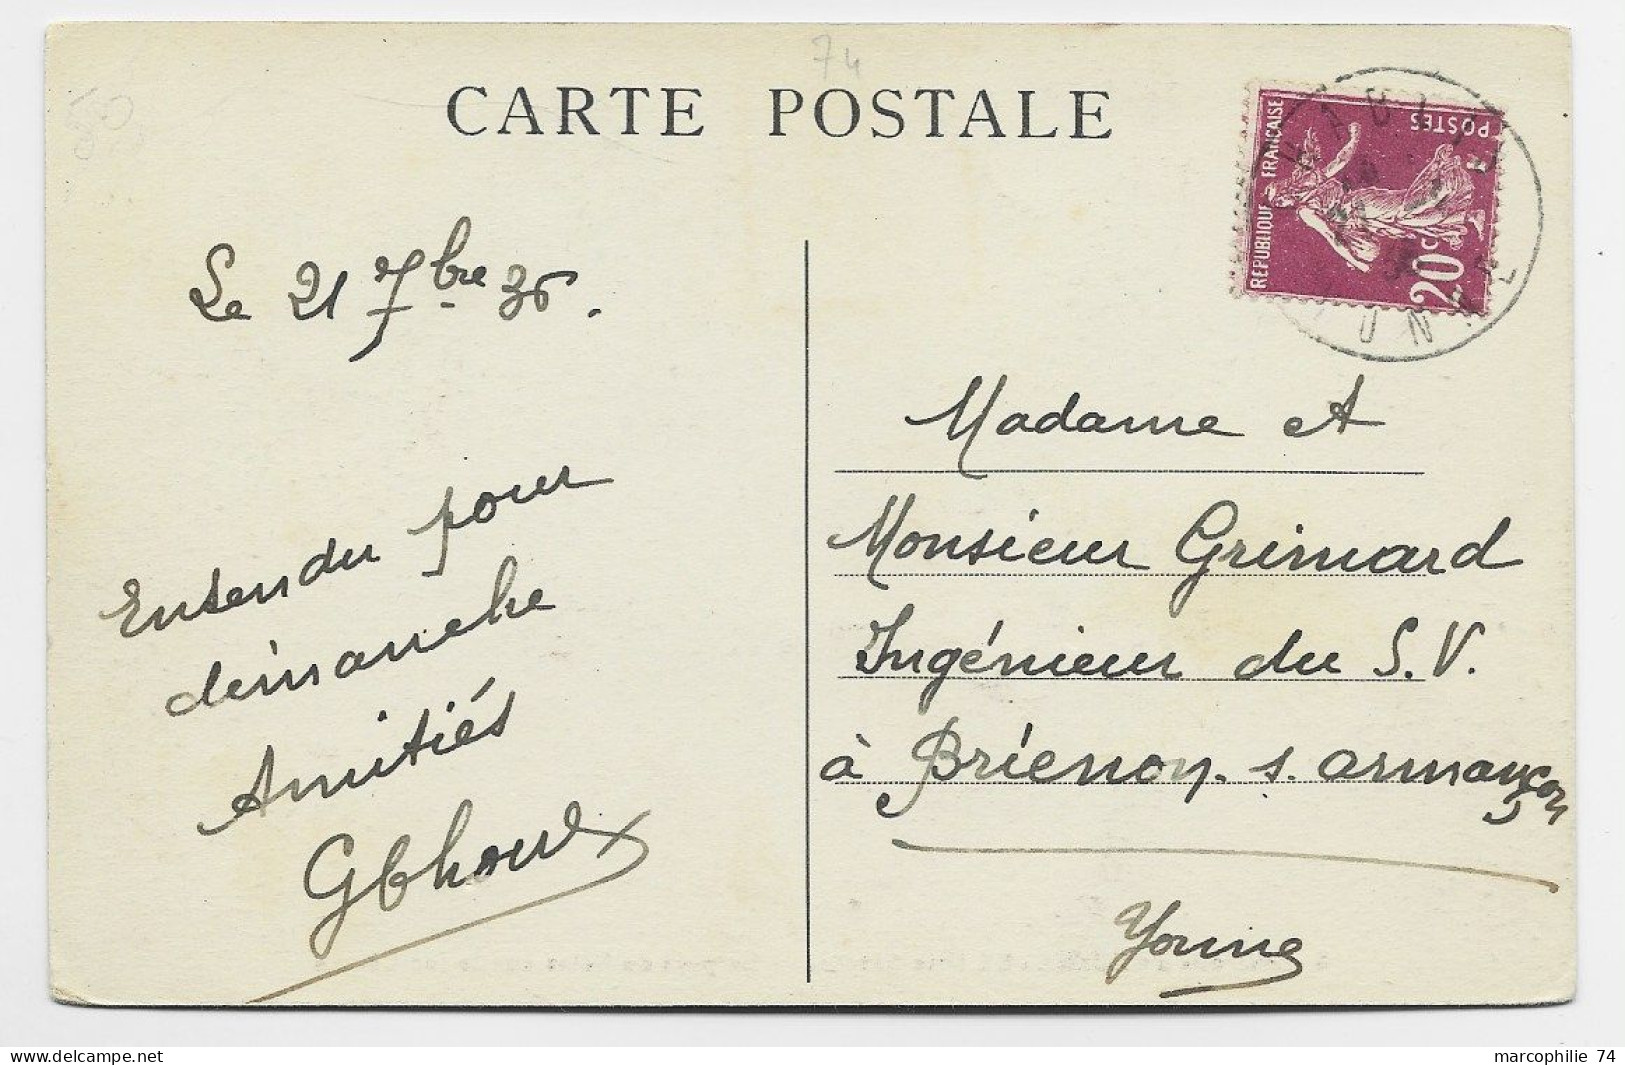 74
CARTE POSTALE
REPUBLIQUE FRANÇAISE
POSTES
20c
Le 21 7bre 36.
Entendu pour
dimanche
Amitiés
Madame et
Monsieur Grimard
Ingénieur du S.V.
à Brienon. s. armançon
Yonne
marcophilie 74